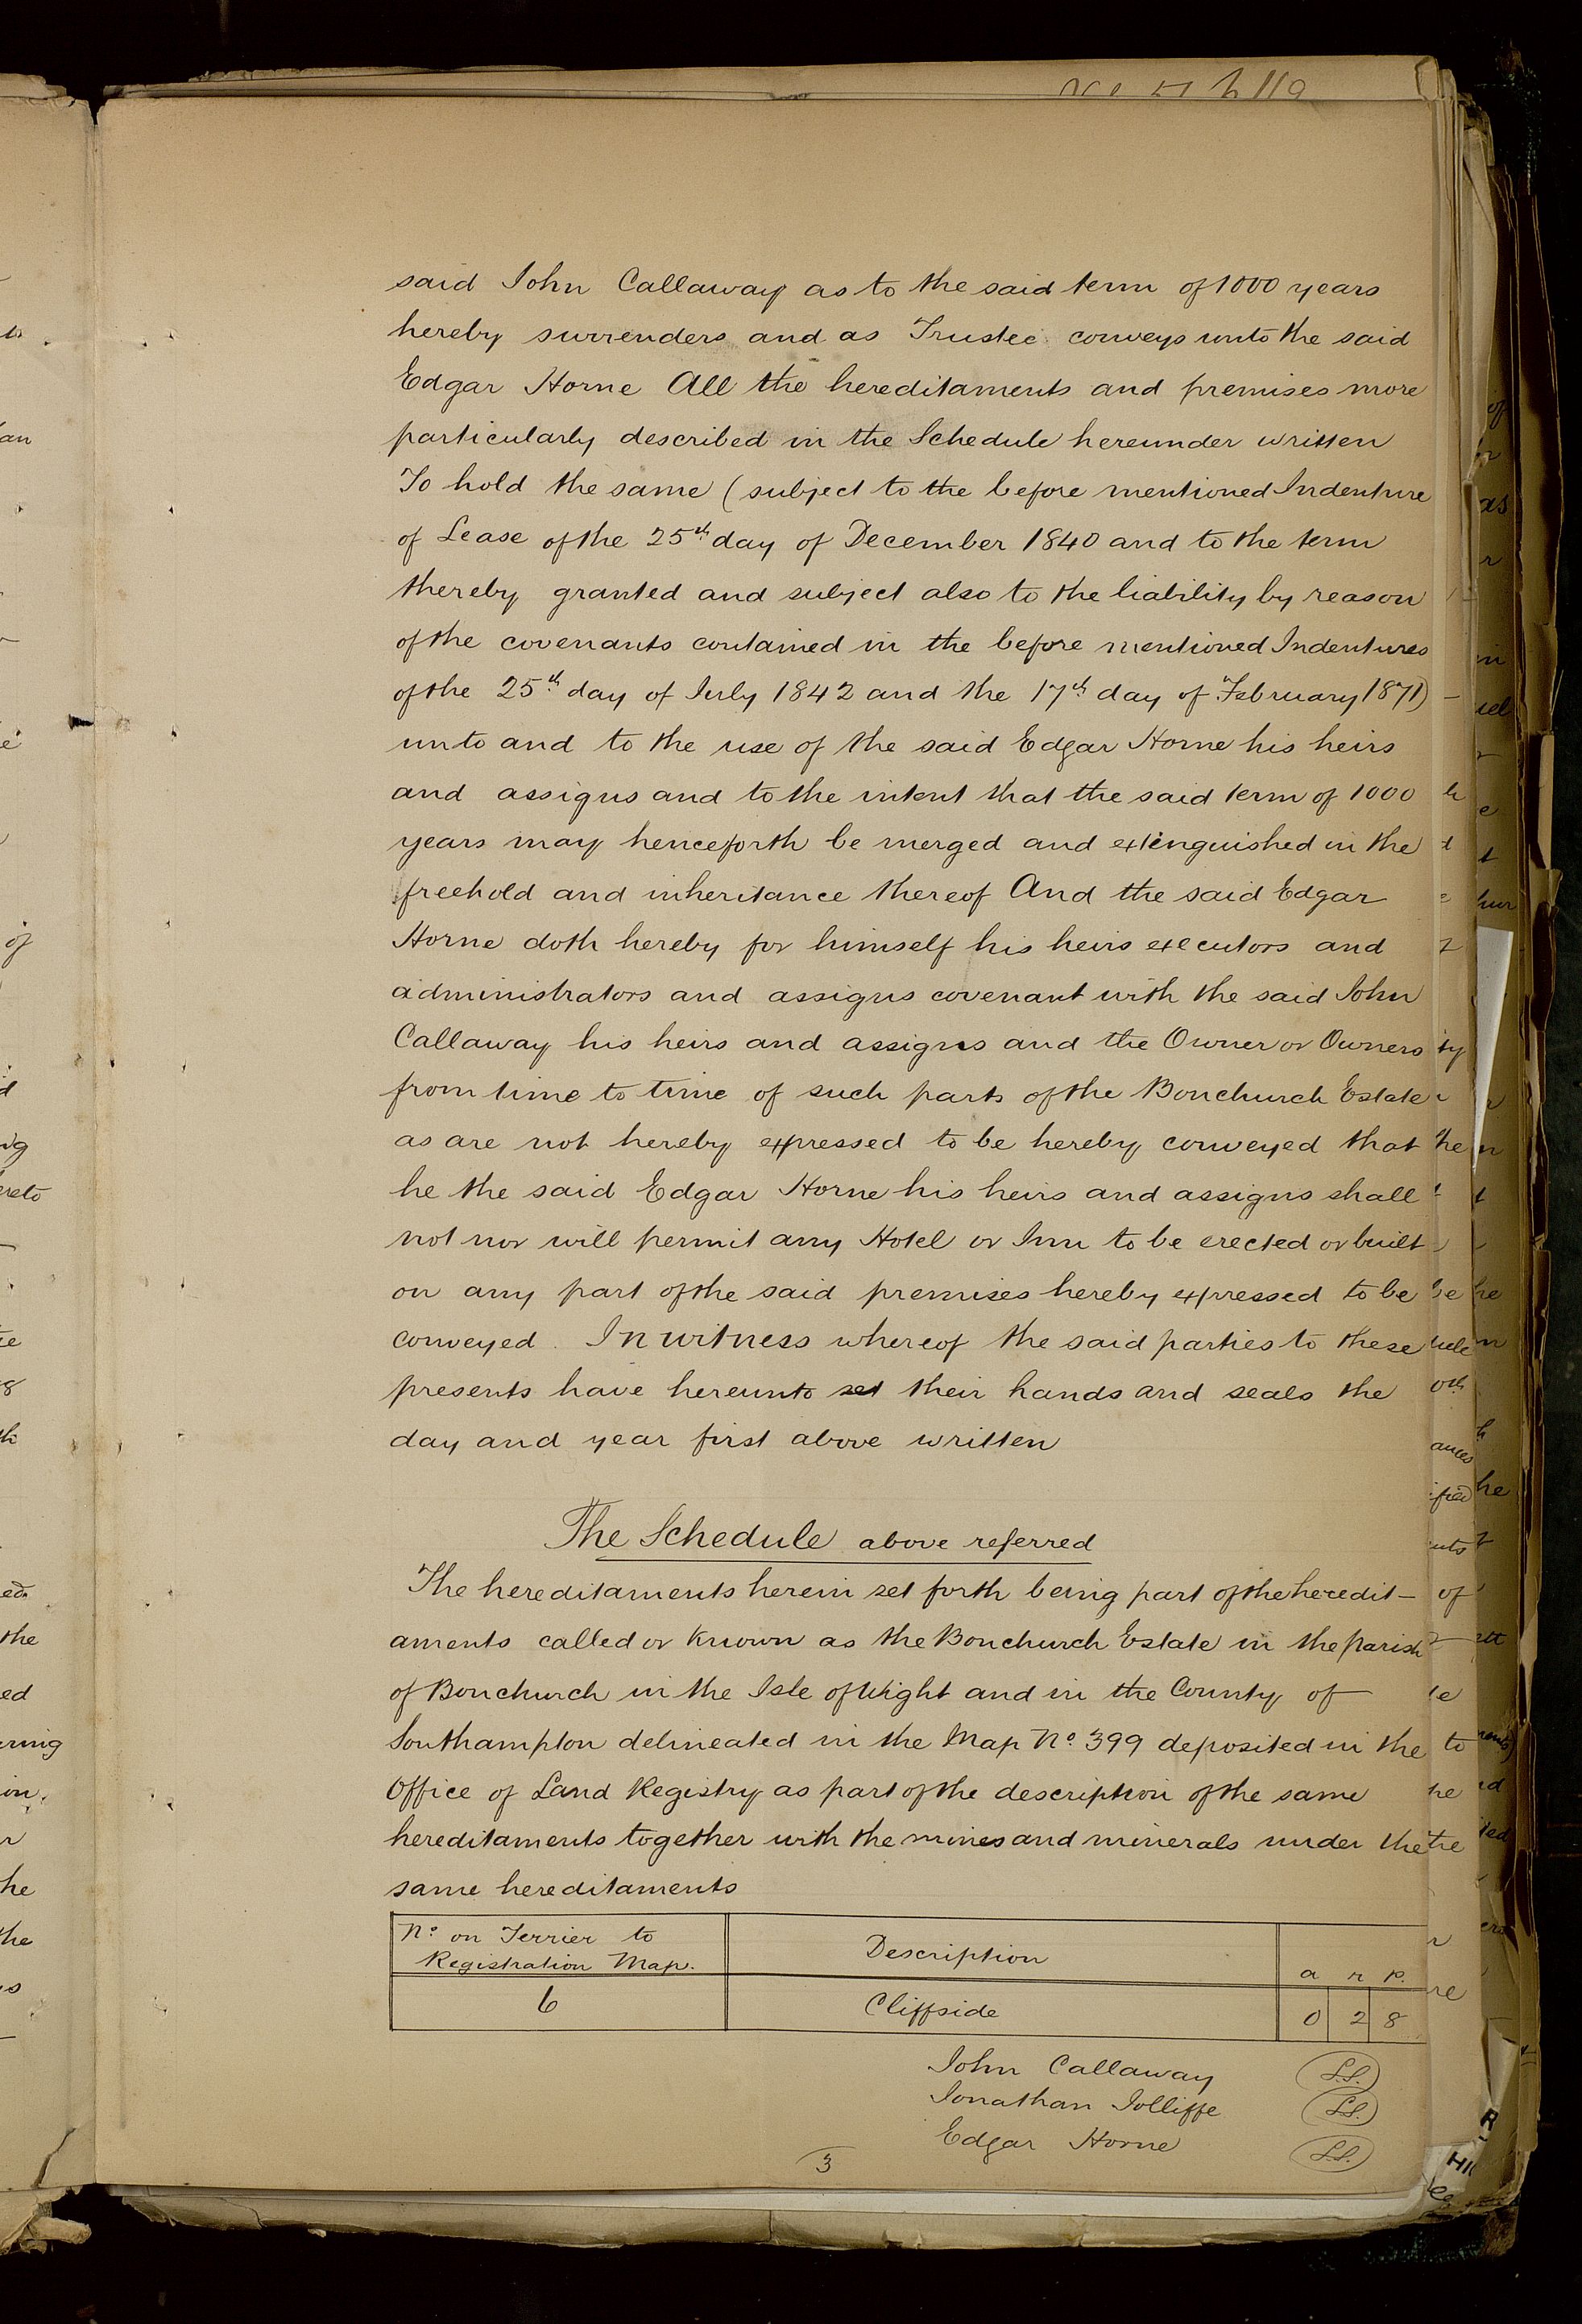 said John Callaway as to the said term of 1000 years
hereby surrenders and as Trustee conveys unto the said
Edgar Horne All the hereditaments and premises more
particularly described in the Schedule hereunder written
To hold the same (subject to the before mentioned Indenture
of Lease of the 25th day of December 1840 and to the term
thereby granted and subject also to the liability by reason
of the covenants contained in the before mentioned Indentures
of the 25th day of July 1842 and the 17th day of February 1871) –
unto and to the use of the said Edgar Horne his heirs
and assigns and to the intent that the said term of 1000
years may henceforth be merged and extinguished in the
freehold and inheritance thereof And the said Edgar
Horne doth hereby for himself his heirs executors and
administrators and assigns covenant with the said John
Callaway his heirs and assigns and the Owner or Owners
from time to time of such parts of the Bonchurch Estate
as are not hereby expressed to be hereby conveyed that
he the said Edgar Horne his heirs and assigns shall
not nor will permit any Hotel or Inn to be erected or built
on any part of the said premises hereby expressed to be
conveyed. In witness whereof the said parties to these
presents have hereunto set their hands and seals the
day and year first above written
The Schedule above referred
The hereditaments herein set forth being part of the heredit–
aments called or known as the Bonchurch Estate in the parish
of Bonchurch in the Isle of Wight and in the County of
Southampton delineated in the Map No. 399 deposited in the
Office of Land Registry as part of the description of the same
hereditaments together with the mines and minerals under the
same hereditaments
No. on Terrier to
Registration Map. Description a r p.
6 Cliffside 0 2 8
John Callaway L.S.
Jonathan Jolliffe L.S.
Edgar Horne L.S.
3